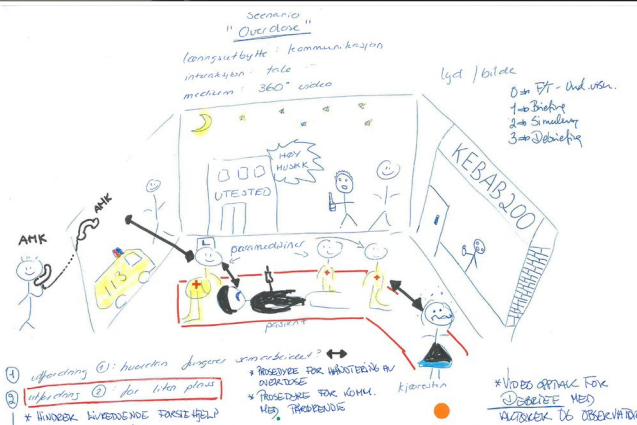 Scenario
"Overdose"
læringsutbytte: kommunikasjon
interaksjon: tale
medium: 360° video
lyd / bilde
0 =>
1 => Briefing
2 => Simulering
3 => Debriefing
HØY
MUSIKK
UTESTED
KEBAB200
AMK
AMK
113
L
paramedisiner
pasient
kjæresten
1 utfordring 1: hvordan fungerer samarbeidet?
2 utfordring 2: for liten plass
* HINDRER LIVREDDENDE FØRSTEHJELP
* PROSEDYRE FOR HÅNDTERING AV
OVERDOSE
* PROSEDYRE FOR KOMM.
MED PÅRØRENDE
* VIDEO OPPTAK FOR
DEBRIEF MED
OG OBSERVATØR